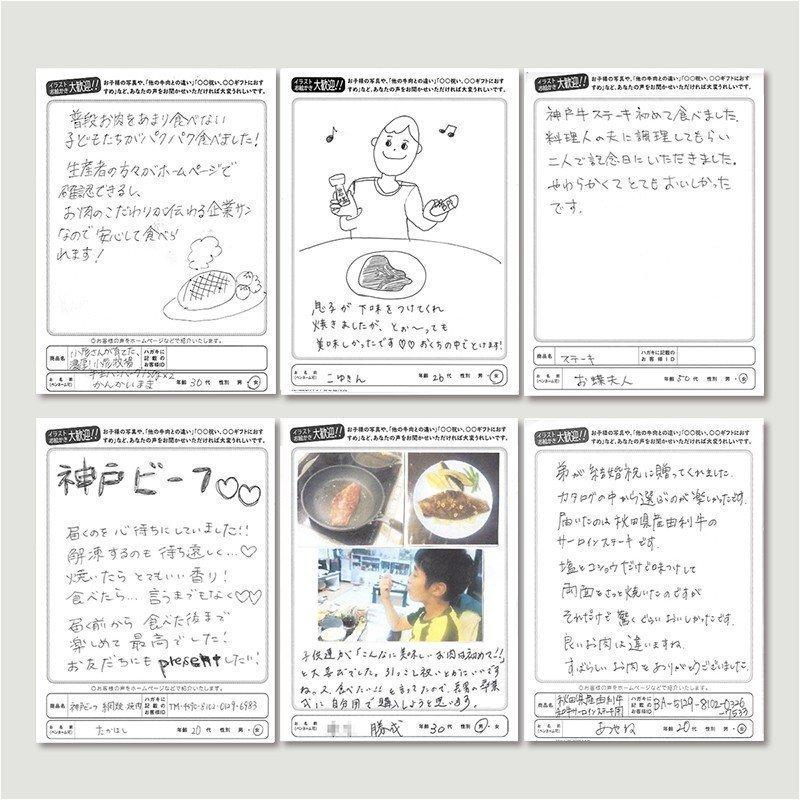 イラスト
お絵かき
大歓迎!!
お子様の写真や、「他の牛肉との違い」「〇〇祝い、〇〇ギフトにおす
すめ」など、あなたの声をお聞かせいただければ大変うれしいです。
普段お肉をあまり食べない
子どもたちがパクパク食べました!
生産者の方々がホームページで
確認できるし、
お肉のこだわりが伝わる企業サン
なので安心して食べら
れます!
◎お客様の声をホームページなどで紹介いたします。
商品名
ハガキに
記載の
お客様ID
お名前
(ペンネーム可)
かんかいまき
年齢 30代 性別 男・女
イラスト
お絵かき
大歓迎!!
お子様の写真や、「他の牛肉との違い」「〇〇祝い、〇〇ギフトにおす
すめ」など、あなたの声をお聞かせいただければ大変うれしいです。
息子が下味をつけてくれ
焼きましたが、とぉ〜っても
美味しかったです♡♡ おくちの中でとけます!
お名前
(ペンネーム可)
こゆきん
年齢 26代 性別 男・女
イラスト
お絵かき
大歓迎!!
お子様の写真や、「他の牛肉との違い」「〇〇祝い、〇〇ギフトにおす
すめ」など、あなたの声をお聞かせいただければ大変うれしいです。
神戸牛ステーキ初めて食べました。
料理人の夫に調理してもらい
二人で記念日にいただきました。
やわらかくてとてもおいしかった
です。
商品名
ステーキ
ハガキに
記載の
お客様ID
お名前
(ペンネーム可)
お蝶夫人
年齢 50代 性別 男・女
イラスト
お絵かき
大歓迎!!
お子様の写真や、「他の牛肉との違い」「〇〇祝い、〇〇ギフトにおす
すめ」など、あなたの声をお聞かせいただければ大変うれしいです。
神戸ビーフ♡♡
届くのを心待ちにしていました!!
解凍するのも待ち遠しく…♡
焼いたらとてもいい香り!
食べたら…言うまでもなく♡♡
届く前から食べた後まで
楽しめて最高でした!
お友だちにもpresentしたい!
◎お客様の声をホームページなどで紹介いたします。
商品名
神戸ビーフ
焼肉
ハガキに
記載の
お客様ID
TM-4590-8102-0129-6983
お名前
(ペンネーム可)
たかはし
年齢 20代 性別 男・女
イラスト
お絵かき
大歓迎!!
お子様の写真や、「他の牛肉との違い」「〇〇祝い、〇〇ギフトにおす
すめ」など、あなたの声をお聞かせいただければ大変うれしいです。
子供達が「こんなに美味しいお肉は初めて!!」
と大喜びでした。引っこし祝いとかにいいです
ね。又、食べたい!!と言ってたので、長男の卒業
式に自分用で購入しようと思います。
お名前
(ペンネーム可)
勝成
年齢 30代 性別 男・女
イラスト
お絵かき
大歓迎!!
お子様の写真や、「他の牛肉との違い」「〇〇祝い、〇〇ギフトにおす
すめ」など、あなたの声をお聞かせいただければ大変うれしいです。
弟が結婚祝に贈ってくれました。
カタログの中から選ぶのが楽しかったです。
届いたのは秋田県産由利牛の
サーロインステーキです。
塩とコショウだけで味つけして
両面をさっと焼いたのですが
それだけで驚くぐらいおいしかったです。
良いお肉は違いますね。
すばらしいお肉をありがとうございました。
◎お客様の声をホームページなどで紹介いたします。
商品名
秋田県産由利牛
ハガキに
記載の
お客様ID
BA-5129-8102-0326
-7533
お名前
(ペンネーム可)
あやね
年齢 20代 性別 男・女